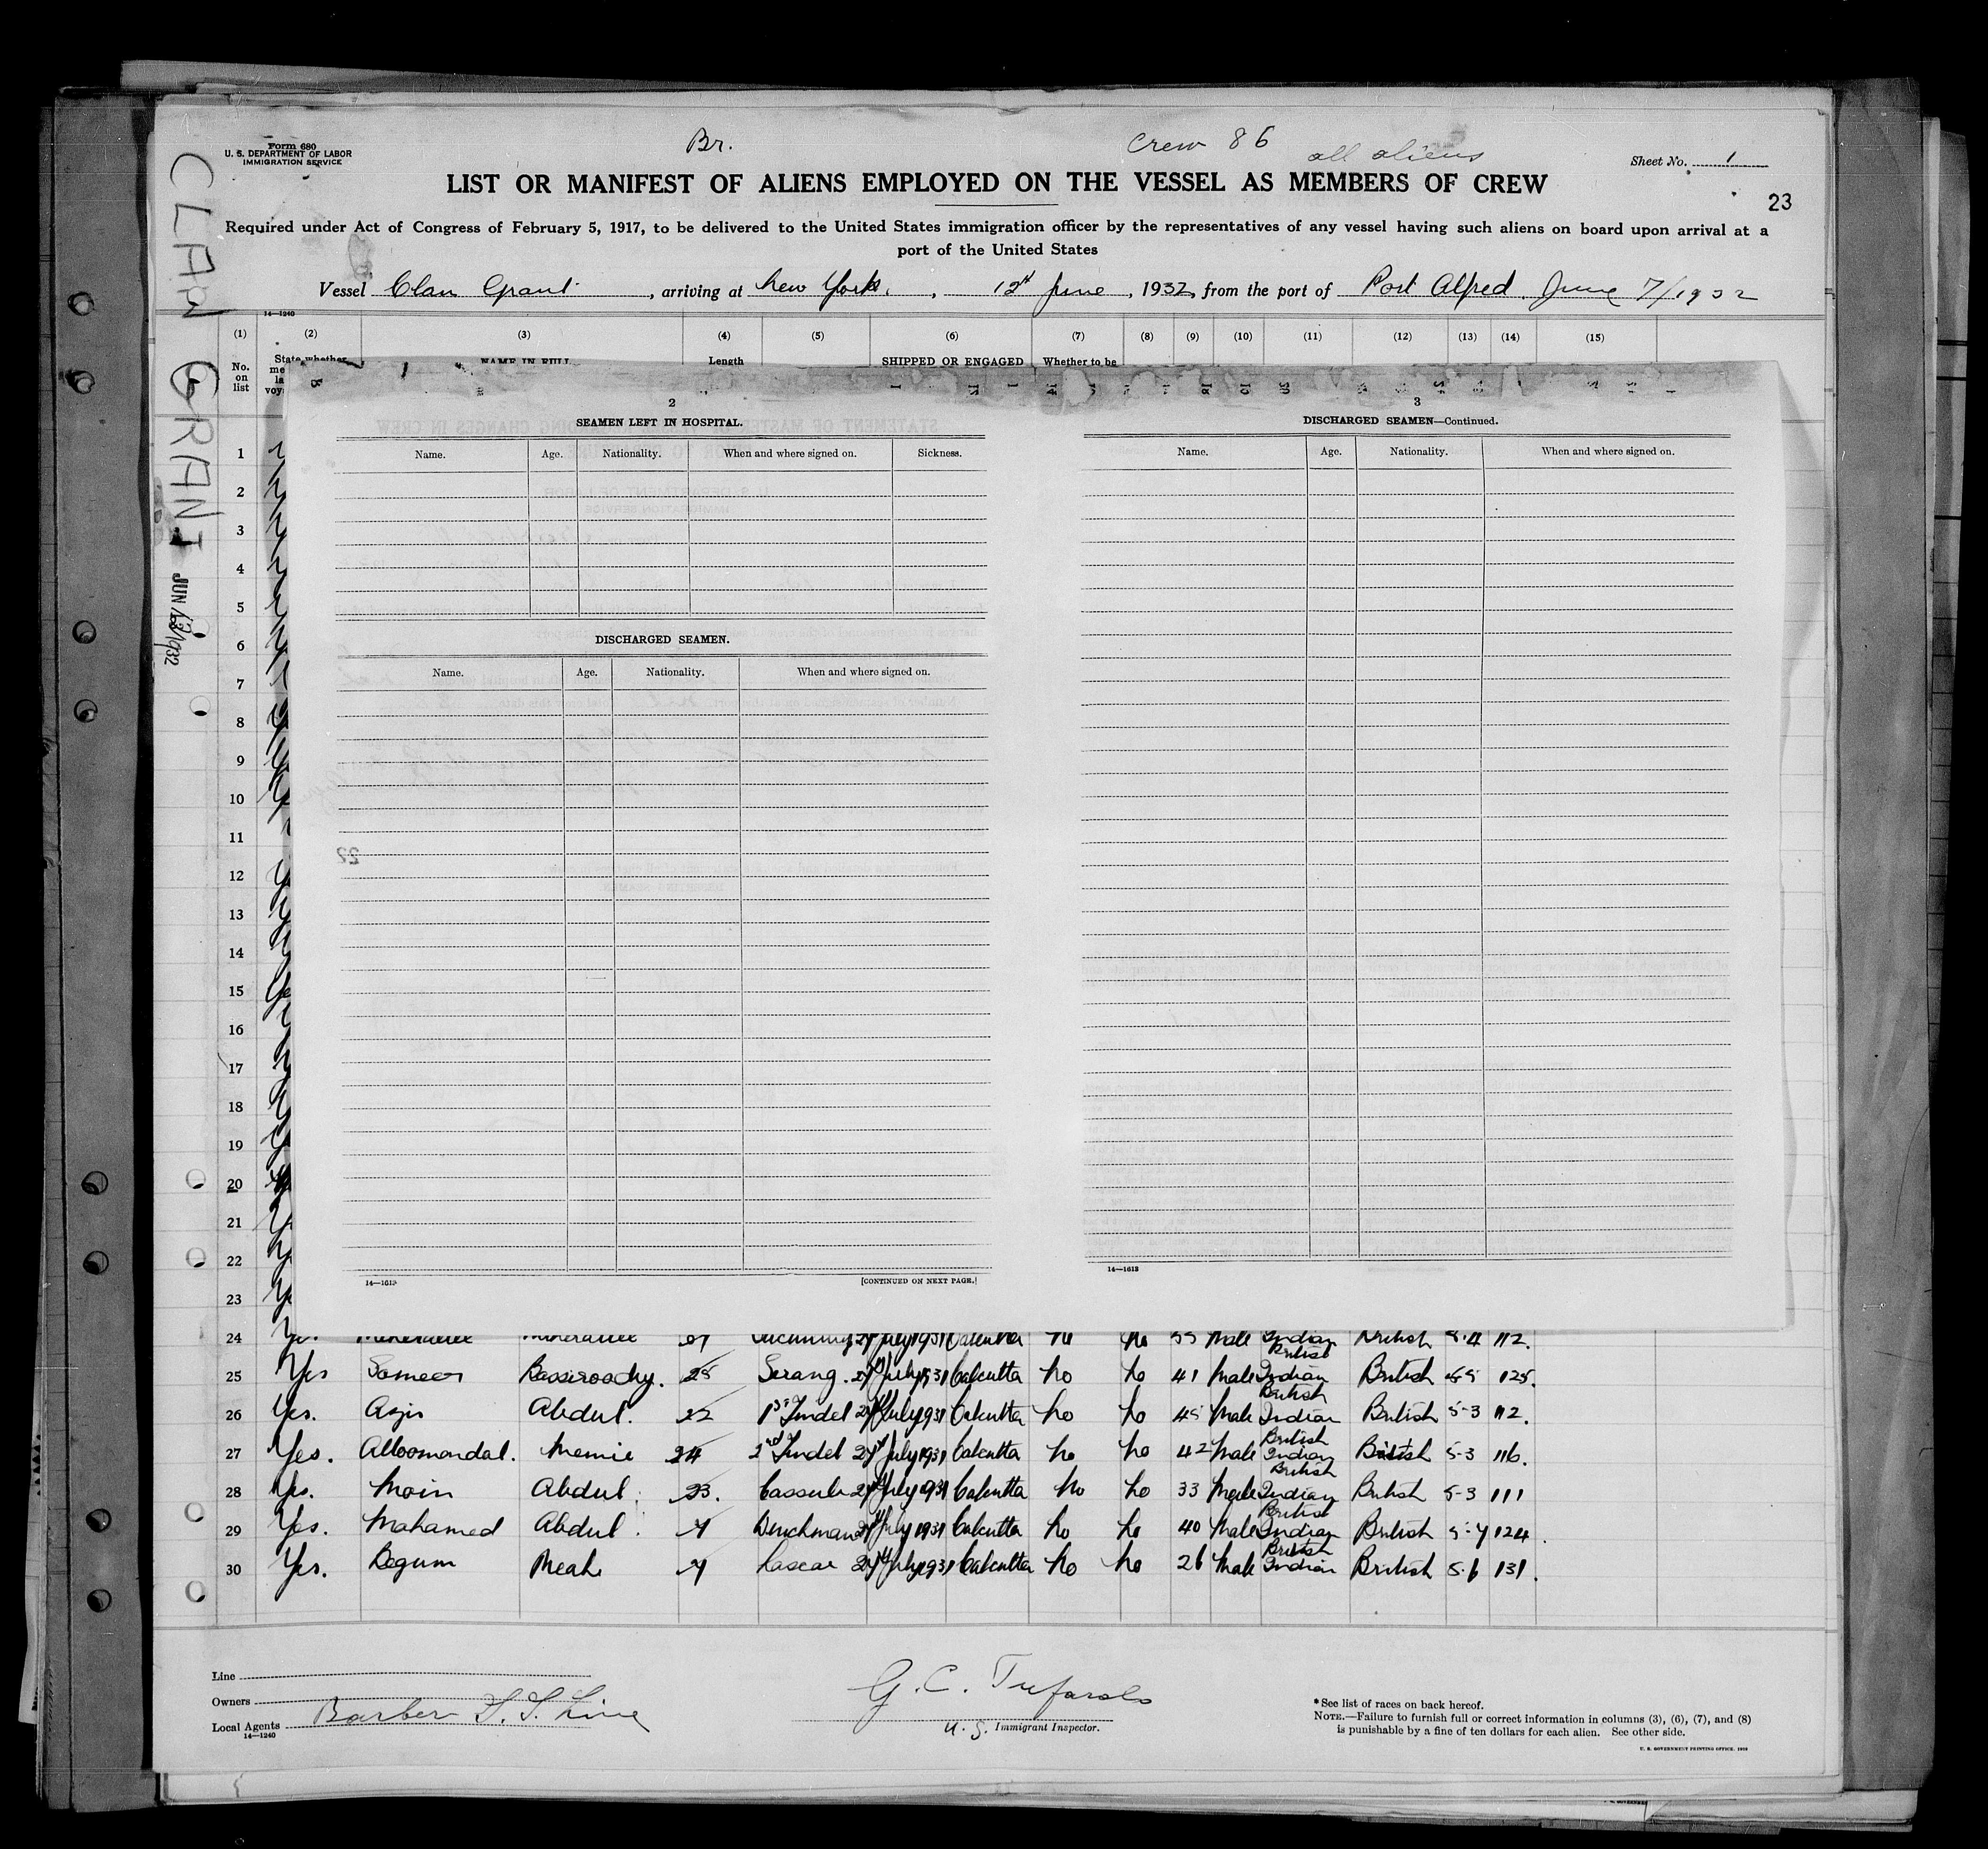 Form 680
U. S. DEPARTMENT OF LABOR
IMMIGRATION SERVICE
Br.
Crew 86
all aliens
Sheet No. 1
LIST OR MANIFEST OF ALIENS EMPLOYED ON THE VESSEL AS MEMBERS OF CREW
23
Required under Act of Congress of February 5, 1917, to be delivered to the United States immigration officer by the representatives of any vessel having such aliens on board upon arrival at a
port of the United States
Vessel Clan Grant, arriving at New York, 12th June, 1932, from the port of Port Alfred June 7/1932
CLAN GRANT JUN 12 1932
14—1240
(1) (2) (3) (4) (5) (6) (7) (8) (9) (10) (11) (12) (13) (14) (15)
No. on list State whether NAME IN FULL Length SHIPPED OR ENGAGED Whether to be
2
SEAMEN LEFT IN HOSPITAL.
Name. Age. Nationality. When and where signed on. Sickness.
DISCHARGED SEAMEN.
Name. Age. Nationality. When and where signed on.
22
14—1613
[CONTINUED ON NEXT PAGE.]
3
DISCHARGED SEAMEN—Continued.
Name. Age. Nationality. When and where signed on.
14—1613
1
2
3
4
5
6
7
8
9
10
11
12
13
14
15
16
17
18
19
20
21
22
23
24 Yes. 27 July 1931 Calcutta No No 55 Male Indian British 5-4 112.
25 Yes Someer Bassiroody. 25 Serang. 27th July 1931 Calcutta No No 41 Male British Indian British 5-5 125.
26 Yes. Azis Abdul. 22 1st Tindel 27th July 1931 Calcutta No No 45 Male British Indian British 5-3 112.
27 Yes. Alloomondal. Memie 24 2nd Tindel 27th July 1931 Calcutta No No 42 Male British Indian British 5-3 116.
28 Yes. Moin Abdul. 23. Cassub 27th July 1931 Calcutta No No 33 Male British Indian British 5-3 111
29 Yes. Mahamed Abdul. 4 Winchman 27th July 1931 Calcutta No No 40 Male British Indian British 5-7 124.
30 Yes. Begum Meah 4 Lascar 27th July 1931 Calcutta No No 26 Male British Indian British 5.6 131.
Line
Owners
Local Agents Barber S.S. Line
14—1240
G. C. Tufarolo
U. S. Immigrant Inspector.
* See list of races on back hereof.
NOTE.—Failure to furnish full or correct information in columns (3), (6), (7), and (8)
is punishable by a fine of ten dollars for each alien. See other side.
U. S. GOVERNMENT PRINTING OFFICE.